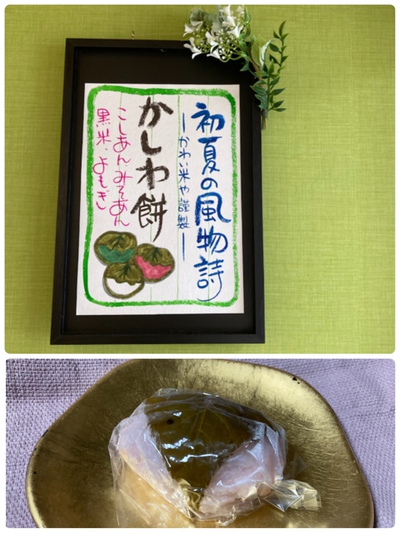 初夏の風物詩
―かわい米や謹製―
かしわ餅
こしあん、みそあん
黒米、よもぎ